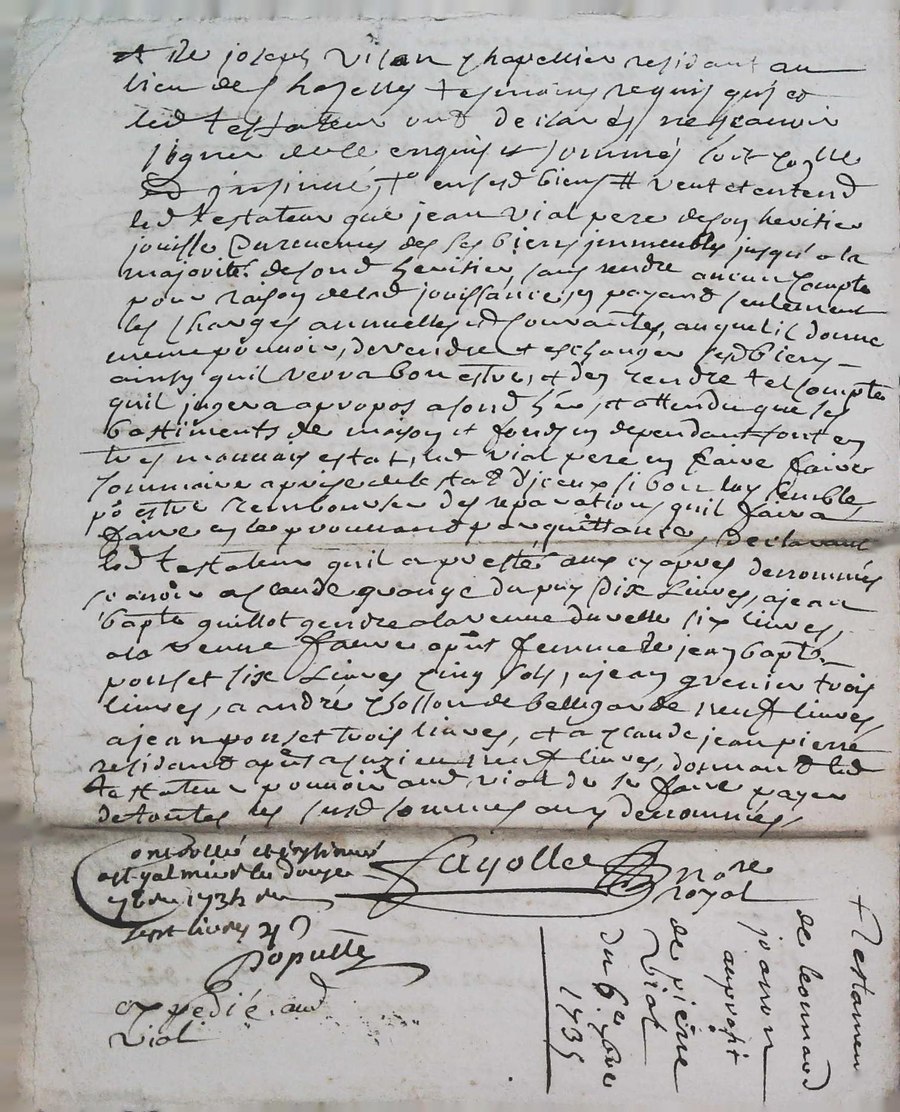 et de joseph vilan chapellier residant au
lieu de chazelles tesmoins requis qui et
led testateur ont declarés ne scavoir
signer de ce enquis et sommés soit controllé
et insinué, ensesd biens # veut et entend
led testateur que jean vial pere de son heritier
jouisse des ses biens immeubles jusqu'a la
majorité de sond heritier, sans rendre aucun compte
pour raison de lad jouissance en payant seulement
les charges annuelles et courantes, auquel il donne
meme pouvoir, de vendre et eschanger sesd biens
ainsy quil verra bon estre, et den rendre tel compte
quil jugera apropos a sond her, et attendu que les
bastiments de maison et fonds en dependant sont en
tres mauvais estat, led vial pere en faire faire
sommaire aprise de lestat d'jceux si bon luy semble,
po estre rembourser des reparations quil faira
faire en le prouvant par quittance, declarant
led testateur quil a presté aux cy apres denommés
scavoir a claude grange du puy dix livres, a jean
bapte guillot gendre a la veuve duvelle six livres,
a la veuve faure apnt femme de jean bapte
ponset six livres cinq sols, a jean grenier trois
livres, a andré chollon de bellegarde neuf livres,
a jean ponset trois livres, et a claude jean pierre
residant apnt a neuf livres, donnant led
testateur pouvoir aud vial de se faire payer
de toutes les susd sommes aux denommés,
Fayolle no.re
royal
controllé et insinué
a st galmier le douze
xbre 1734
sept livres 4 s
Poputte
expedié aud
vial
testament
de leonnard
joanon
auproffit
de pierre
vial
du 6e xbre
1735